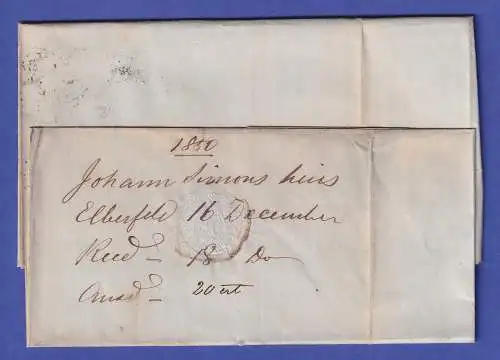 1850
Johann Simons heirs
Elberfeld 16 December
Recd 18 Do
Ansd 20 "